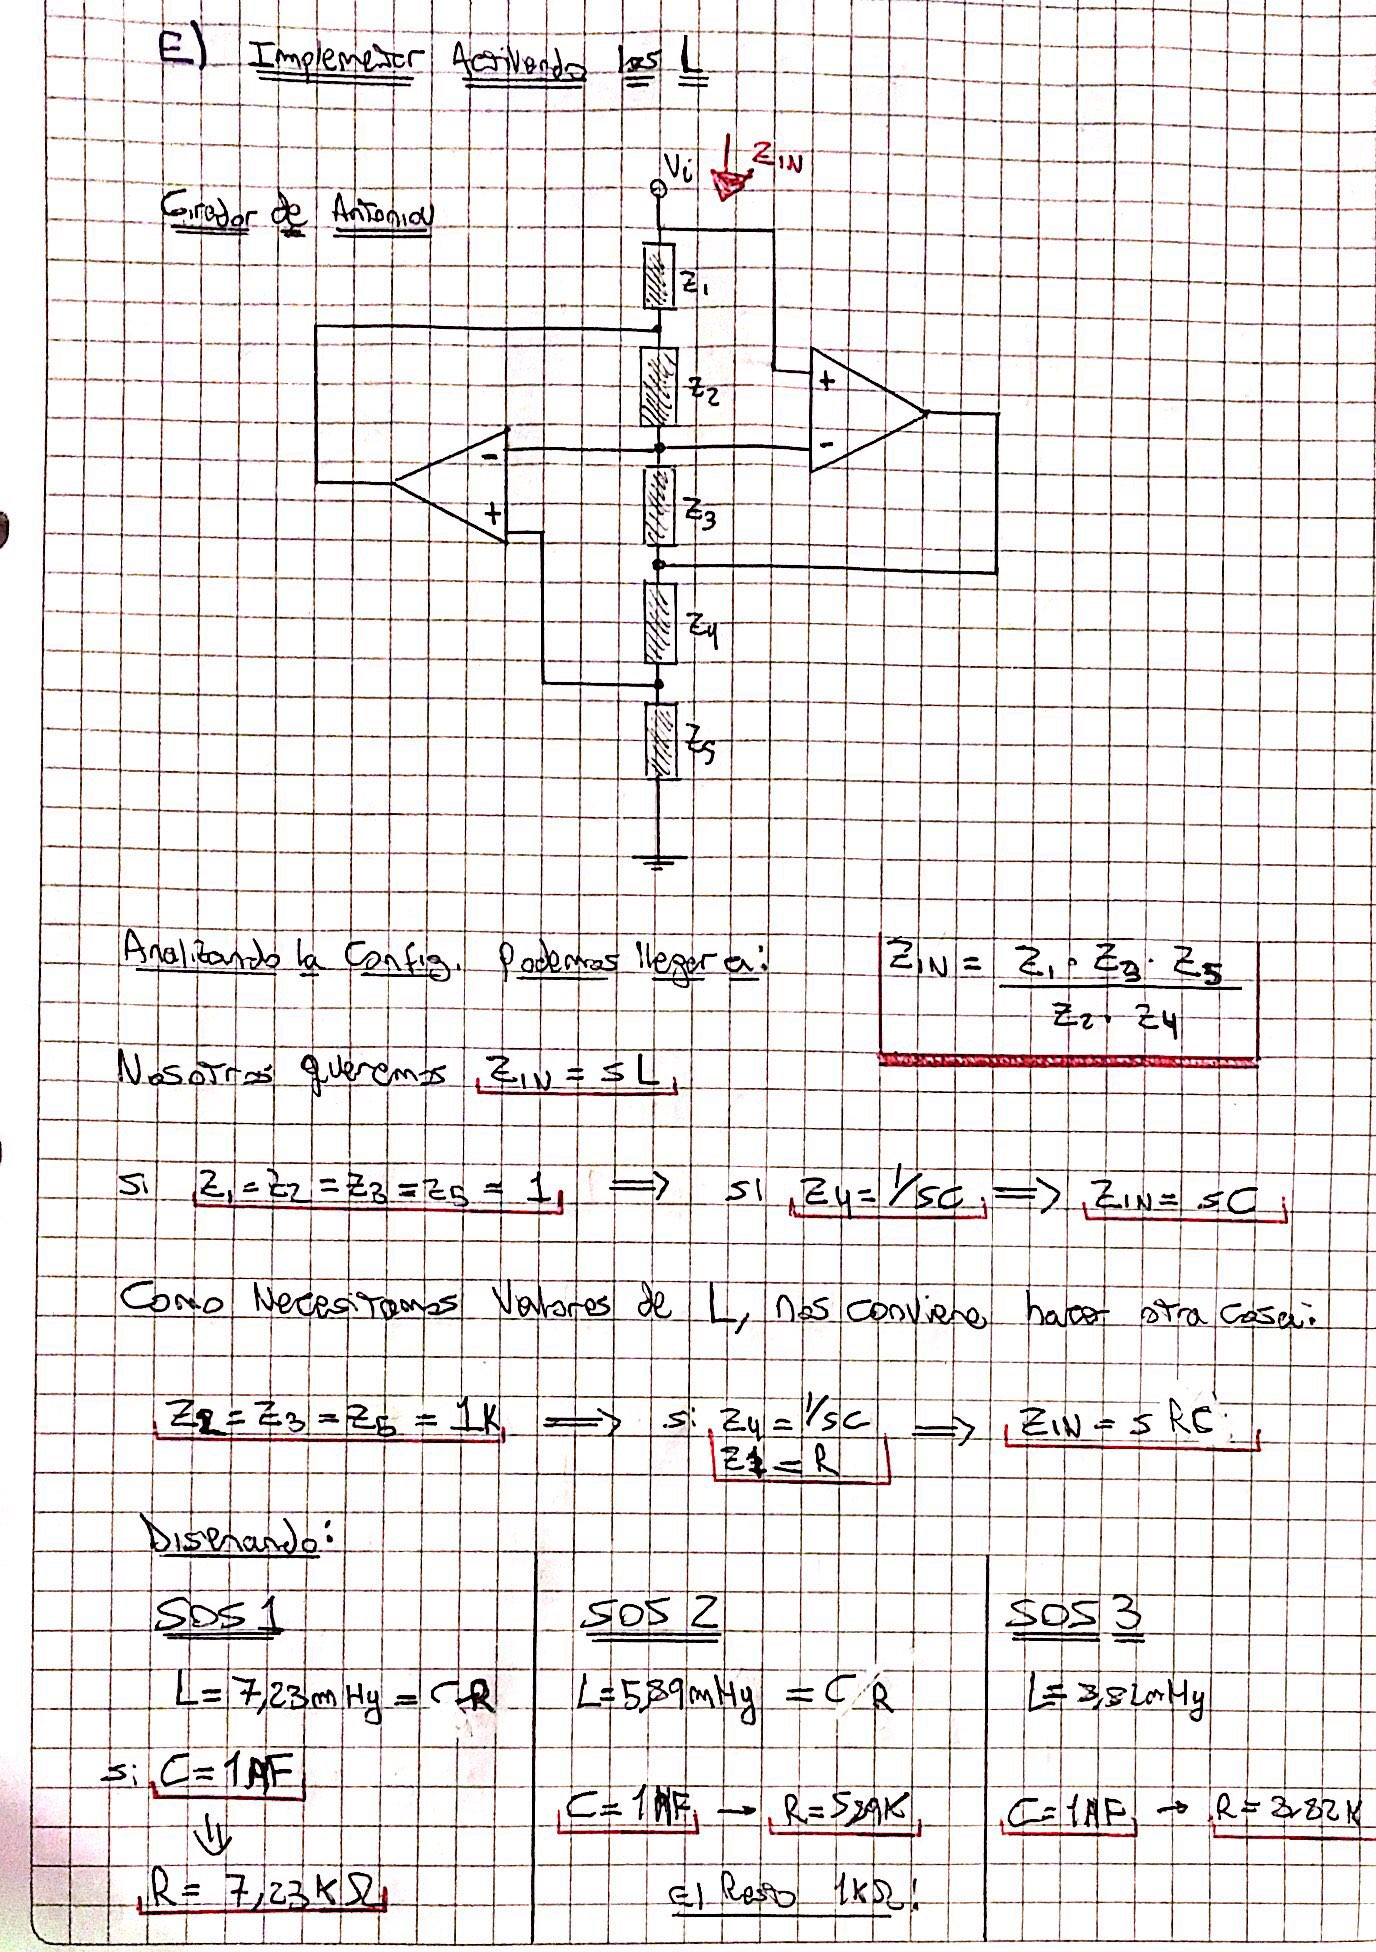 E) Implementar Activando las L
Vi
ZIN
Girador de Antoniou
Z1
Z2
+
-
-
+
Z3
Z4
Z5
Analizando la Config. Podemos llegar a:
ZIN = Z1 · Z3 · Z5 / Z2 · Z4
Nosotros queremos ZIN = sL
si Z1 = Z2 = Z3 = Z5 = 1 ⟹ si Z4 = 1/sC ⟹ ZIN = sC
Como Necesitamos Valores de L, nos conviene hacer otra cosa:
Z2 = Z3 = Z5 = 1K ⟹ si Z4 = 1/sC ⟹ ZIN = s RC
Z1 = R
Diseñando:
SOS 1
L = 7,23mHy = C R
si C = 1
⇓
R = 7,23KΩ
SOS 2
L = 5,89mHy = C R
C = 1 → R = 5,89K
El Resto 1KΩ!
SOS 3
L = 3,82mHy
C = 1 → R = 3.82K